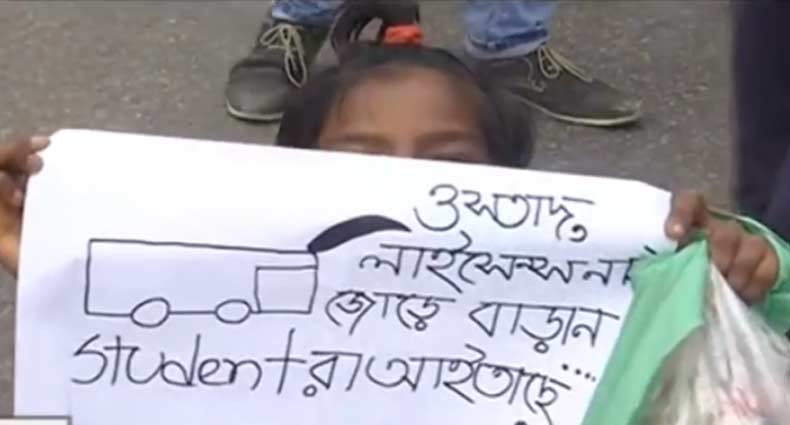 ওস্তাদ,
লাইসেন্স নাই
জোড়ে বাড়ান
Studentরা আইতাছে....